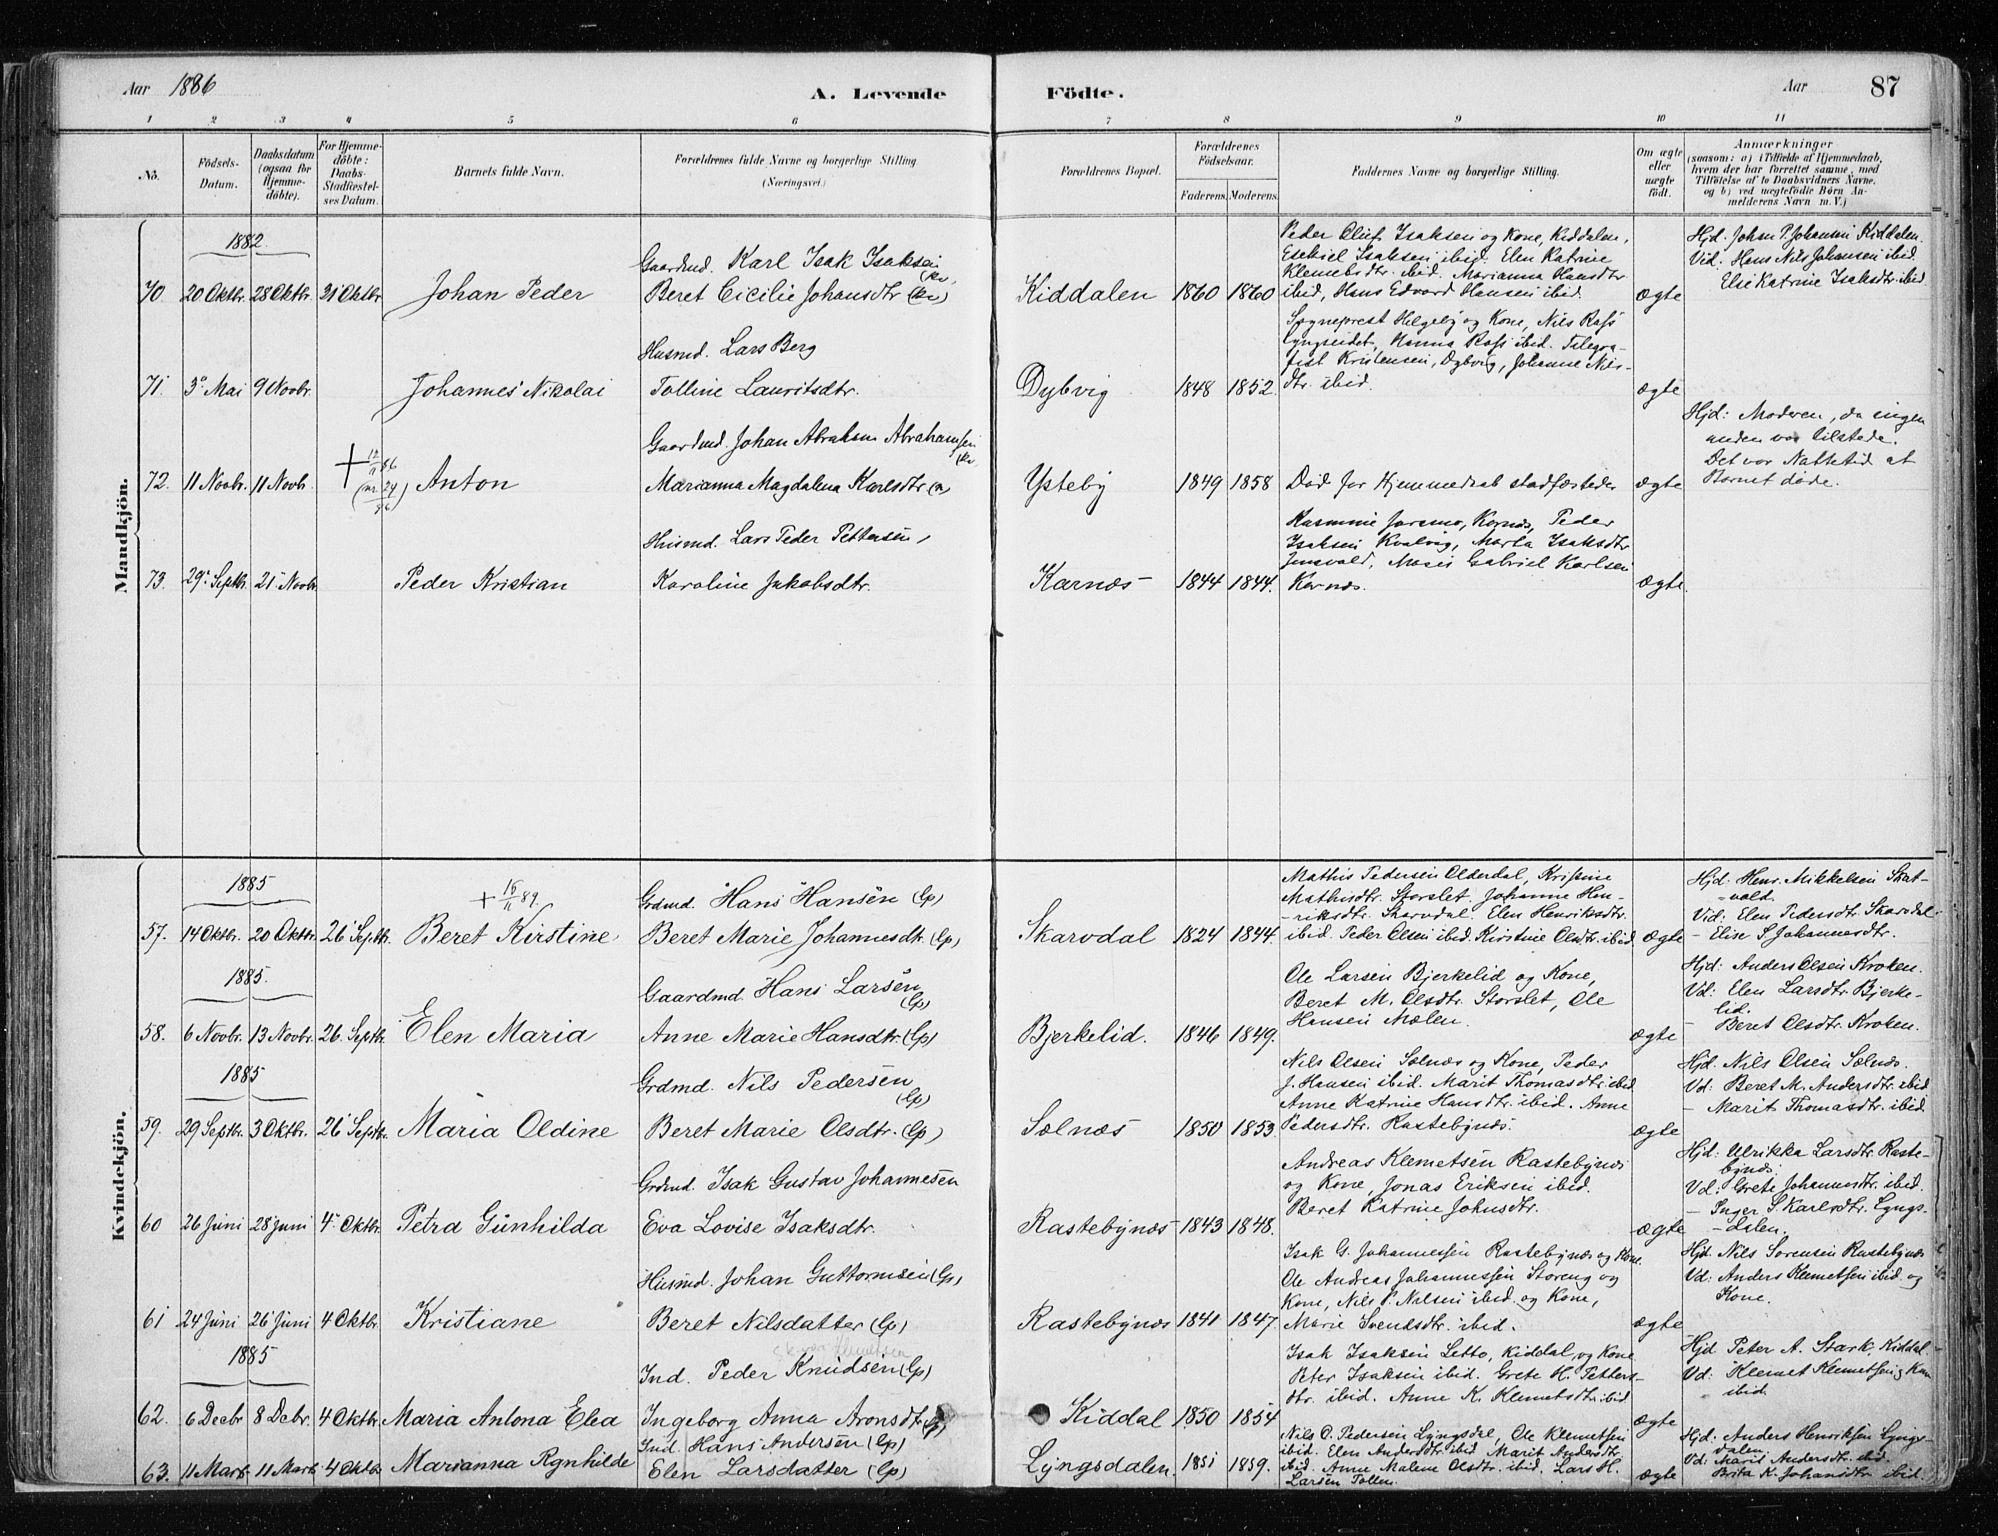 Aar 1886
A. Levende Födte.
Aar 87
1 2 3 4 5 6 7 8 9 10 11
No.
Födsels-
Datum.
Daabsdatum
(ogsaa for
Hjemme-
döbte).
For Hjemme-
döbte:
Daabs-
Stadfæstel-
ses Datum.
Barnets fulde Navn.
Forældrenes fulde Navne og borgerlige Stilling.
(Næringsvei.)
Forældrenes Bopæl.
Forældrenes
Födselsaar.
Faderens. Moderens.
Faddernes Navne og borgerlige Stilling.
Om ægte
eller
uægte
födt.
Anmærkninger
(saasom: a) i Tilfælde af Hjemmedaab,
hvem der har forrettet samme, med
Tilföielse af to Daabsvidners Navne,
og b) ved uægtefödte Börn An-
melderens Navn m. V.)
Mandkjön.
1882
70 20 Oktbr. 28 Oktbr. 31 Oktbr Johan Peder
Gaardmd. Karl Isak Isaksen (kv)
Beret Cicilie Johansdtr (kv)
Kiddalen 1860 1860
Peder Oluf Isaksen og Kone, Kiddalen,
Esekiel Isaksen ibid. Elen Katrine
Klemetsdtr. ibid. Marianna Hansdtr
ibid, Hans Edvard Hansen ibid.
ægte
Hjd. Johan P. Johansen Kiddalen.
Vid: Hans Nils Johansen ibid.
Else Katrine Isaksdtr. ibid
71. 3 Mai 9 Novbr. Johannes Nikolai
Husmd. Lars Berg
Tolline Lauritsdtr.
Dybvig 1848 1852.
Sogneprest Helgeby og Kone, Nils Rasf
Lyngseidet, Hanna Rasf ibid. Telegra-
fist Kristensen, Dybvig, Johanne Nils-
dtr. ibid.
ægte
72. 11 Novbr. 11 Novbr. + 12/11 86 (nr. 24 96) Anton
Gaardmd. Johan Abraham Abrahamsen (kv
Marianna Magdalena Karlsdtr
Ysteby 1849 1858
Död for Hjemmedaab stadfæstedes
ægte
Hjd: Moderen, da ingen
anden var tilstede.
Det var Nattetid at
Barnet döde.
73. 29 Septbr. 21 Novbr Peder Kristian
Husmd. Lars Peder Pettersen,
Karoline Jakobsdtr.
Karnæs 1844 1844.
Rasmine Jaremo, Kornæs, Peder
Isaksen Kvalvig, Marta Isaksdtr
Jensvold, Moses Gabriel Karlsen
Kornæs.
ægte.
Kvindekjön.
1885
57. 14 Oktbr. 20 Oktbr. 26 Septbr. + 16/11 89. Beret Kirstine
Grdmd. Hans Hansen (Lp)
Beret Marie Johannesdtr. (Lp)
Skarvdal 1824 1844.
Mathis Pedersen Olderdal, Kristine
Mathisdtr. Storslet Johanne Hen-
-riksdtr. Skarvdal. Elen Henriksdtr.
ibid. Peder Olsen ibid. Kirstine Olsdtr. ibid.
ægte
Hjd: Henr. Mikkelsen Skat-
vold.
Vid: Elen Pedersdtr. Skarvdal
- Elise S Johannesdtr.
1885.
58. 6 Novbr. 13 Novbr. 26. Septbr. Elen Maria
Gaardmd. Hans Larsen (Lp)
Anne Marie Hansdtr. (Lp)
Bjerkelid. 1846 1849.
Ole Larsen Bjerkelid og Kone,
Beret M. Olsdtr. Storslet, Ole
Hansen Mælen.
ægte
Hjd: Anders Olsen Kroken.
Vd: Elen Larsdtr. Bjerke-
lid.
- Beret Olsdtr. Kroken.
1885
59. 29 Septbr. 3 Oktbr. 26 Septbr. Maria Oldine
Grdmd. Nils Pedersen (Lp)
Beret Marie Olsdtr. (Lp)
Solnæs 1850 1853.
Nils Olsen Solnæs og Kone, Peder
J. Hansen ibid. Marit Thomasdtr. ibid
Anne Katrine Hansdtr. ibid. Anne
Pedersdtr. Rastebynæs.
ægte
Hjd. Nils Olsen Solnæs.
Vd: Beret M. Andersdtr. ibid
- Marit Thomasdtr. ibid.
60 26 Juni 28 Juni 4 Oktbr. Petra Gunhilda
Grdmd. Isak Gustav Johannesen
Eva Lovise Isaksdtr.
Rastebynæs 1843 1848.
Andreas Klemetsen Rastebynæs
og Kone, Jonas Eriksen ibid.
Beret Katrine Johnsdtr.
ægte
Hjd: Ulrikka Larsdtr. Raste-
bynæs.
Vd: Grete Johannesdtr. ibid.
- Inger S. Karlsdtr. Lyngs-
-dalen.
61 24 Juni 26 Juni 4 Oktbr. Kristiane
Husmd. Johan Guttormsen (Lp)
Beret Nilsdatter (Lp)
Rastebynæs 1841 1847.
Isak G. Johannessen Rastebynæs og Kone.
Ole Andreas Johannessen Storeng og
Kone, Nils P. Nilsen ibid. og Kone,
Marie Svendsdtr. ibid.
ægte
Hjd. Nils Sorensen Rastebynæs
Vd: Anders Klemetsen ibid. og
Kone.
1885
62. 6 Decbr 8 Dcbr. 4 Oktbr. Maria Antona Elea
Ind. Peder Knudsen (Lp)
Ingeborg Anna Aronsdtr.
Kiddal 1850 1854
Isak Isaksen Letto, Kiddal, og Kone
Peter Isaksen ibid. Grete K. Petters-
dtr. ibid. Anne K. Klemetsdtr. ibid
ægte
Hjd Peter A. Stark, Kiddal.
Vd: Klemet Klemetsen og Kone
ibid.
63. 11 Marts 11 Marts 4 Oktbr Marianna Rgnhilde
Ind. Hans Andersen (Lp)
Elen Larsdatter (Lp)
Lyngsdalen 1851 1859.
Nils O. Pedersen Lyngsdal, Ole Klemetsen
ibid. Elen Andersdtr. ibid Marit Andersdtr.
ibid. Anne Malene Olsdtr. ibid. Lars H.
Larsen Tollen.
ægte
Hjd: Anders Henriksen Lyngs-
dalen.
Vd: Marit Andersdtr. ibid.
Brita K. Johansdtr. ibid.